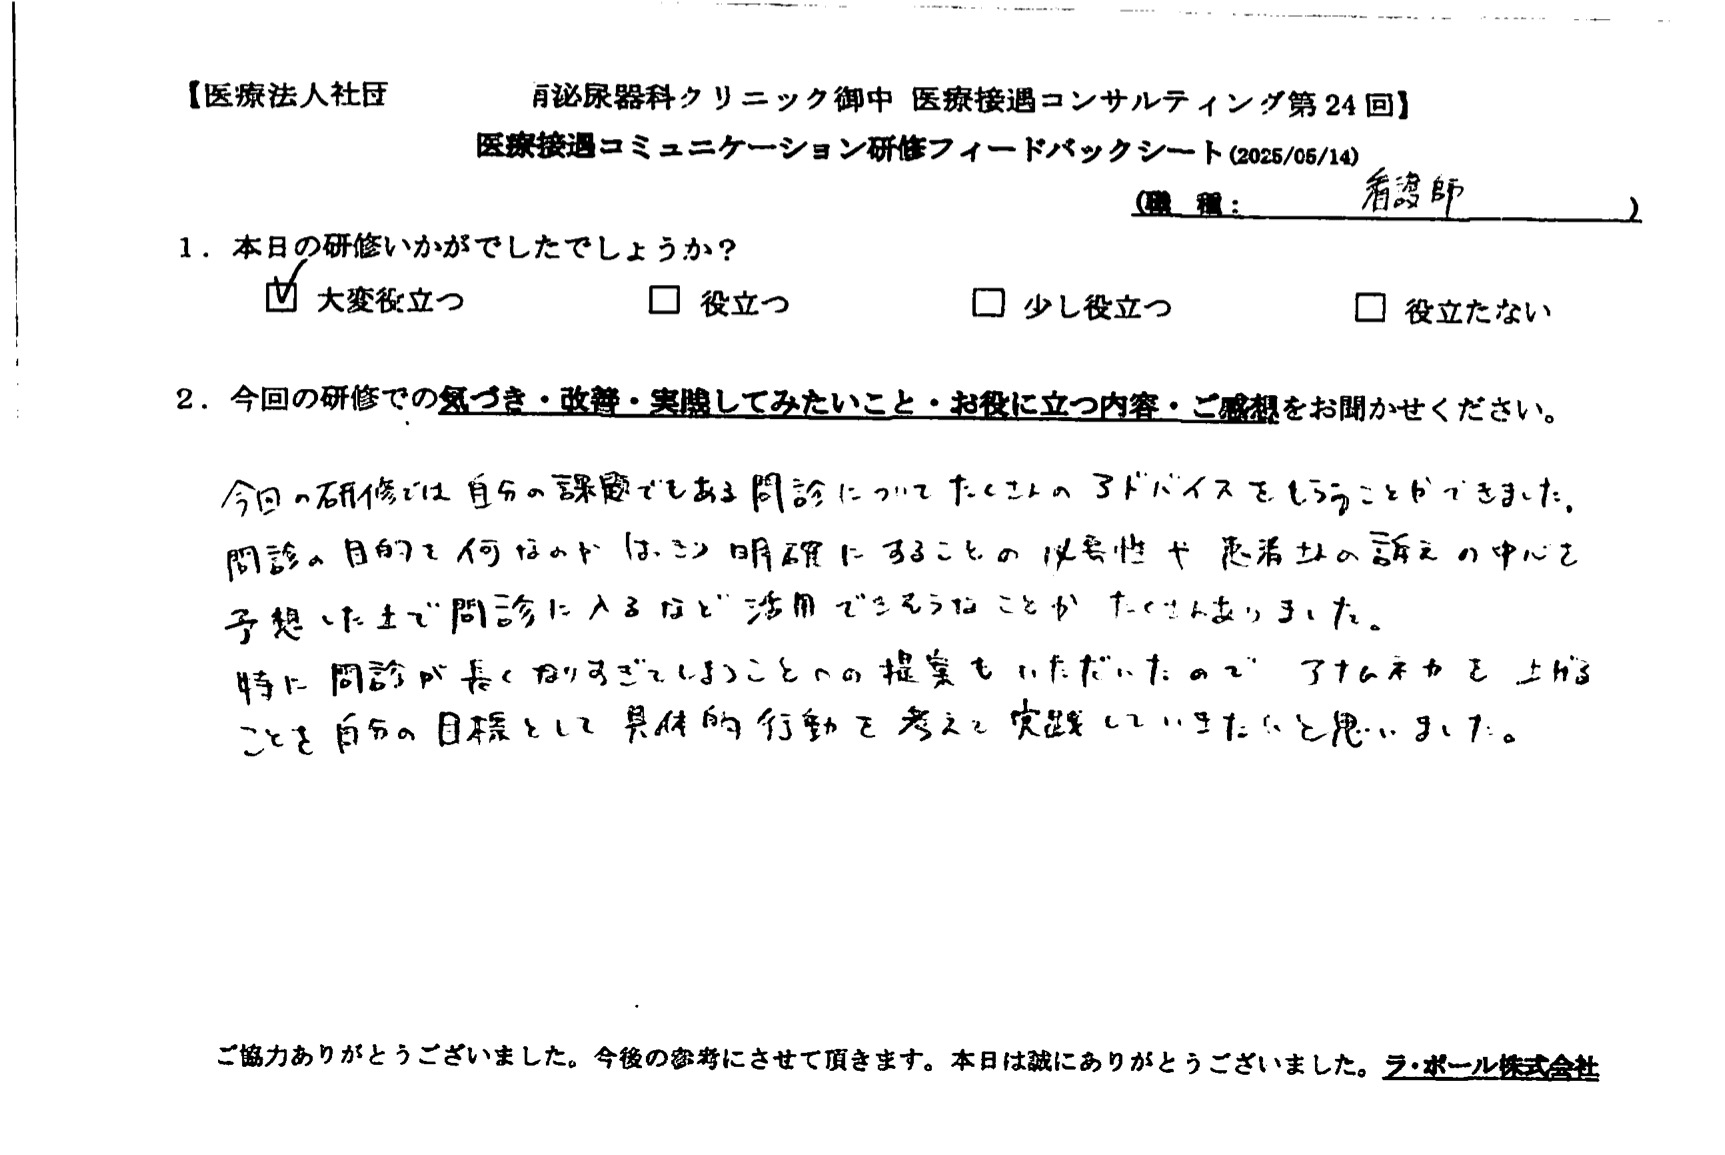 【医療法人社団 泌尿器科クリニック御中 医療接遇コンサルティング第24回】
医療接遇コミュニケーション研修フィードバックシート(2025/05/14)
(職 種: 看護師 )
1. 本日の研修いかがでしたでしょうか?
☑ 大変役立つ □ 役立つ □ 少し役立つ □ 役立たない
2. 今回の研修での気づき・改善・実践してみたいこと・お役に立つ内容・ご感想をお聞かせください。
今回の研修では自分の課題でもある問診についてたくさんのアドバイスをもらうことができました。
問診の目的を何なのかはっきり明確にすることの必要性や患者さんの訴えの中心を
予想した上で問診に入るなど活用できそうなことがたくさんありました。
特に問診が長くなりすぎてしまうことへの提案もいただいたのでアナムネ力を上げる
ことを自分の目標として具体的行動を考えて実践していきたいと思いました。
ご協力ありがとうございました。今後の参考にさせて頂きます。本日は誠にありがとうございました。ラ・ポール株式会社